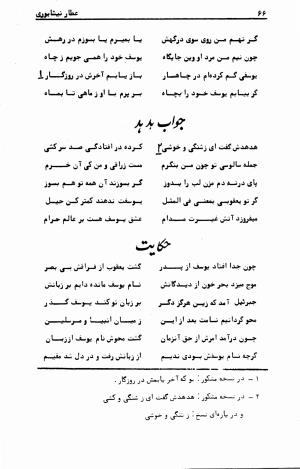 ۶۶ عطار نیشابوری
گر نهم من روی سوی درگهش یا بمیرم یا بسوزم در رهش
چون نیم من مرد او وین جایگاه یوسف خود را همی جویم ز چاه
یوسفی گم کرده‌ام در چاهسار باز یابم آخرش در روزگار ۱
گر بیابم یوسف خود را بچاه بر پرم با او ز ماهی تا بماه
جواب هدهد
هدهدش گفت ای زشنگی و خوشی ۲ کرده در افتادگی صد سر کشی
جمله سالوسی تو چون من بنگرم مست زراقی و من کی آن خرم
پای درنه دم مزن لب را بدوز گر بسوزند آن همه تو هم بسوز
گر تو یعقوبی بمعنی فی المثل یوسفت ندهند کمتر کن حیل
میفروزد آتش غیرت مدام عشق یوسف هست بر عالم حرام
حکایت
چون جدا افتاد یوسف از پدر گشت یعقوب از فراقش بی بصر
موج میزد بحر خون از دیدگانش نام یوسف مانده دایم بر زبانش
جبرئیل آمد که زین هرگز دگر بر زبان تو کند یوسف گذر
محو گردانیم نامت بعد از این از میان انبیا و مرسلین
چون درآمد امرش از حق آنزمان گشت محوش نام یوسف اززبان
گرچه نام یوسفش بودی ندیم از زبانش رفت و در دل شد مقیم
۱ - در نسخه مذکور: بو که آخر یابمش در روزگار.
۲ - در نسخه مذکور: هدهدش گفت ای ز شنگی و کشی
و در پاره‌ای نسخ: ز شنگی و خوشی